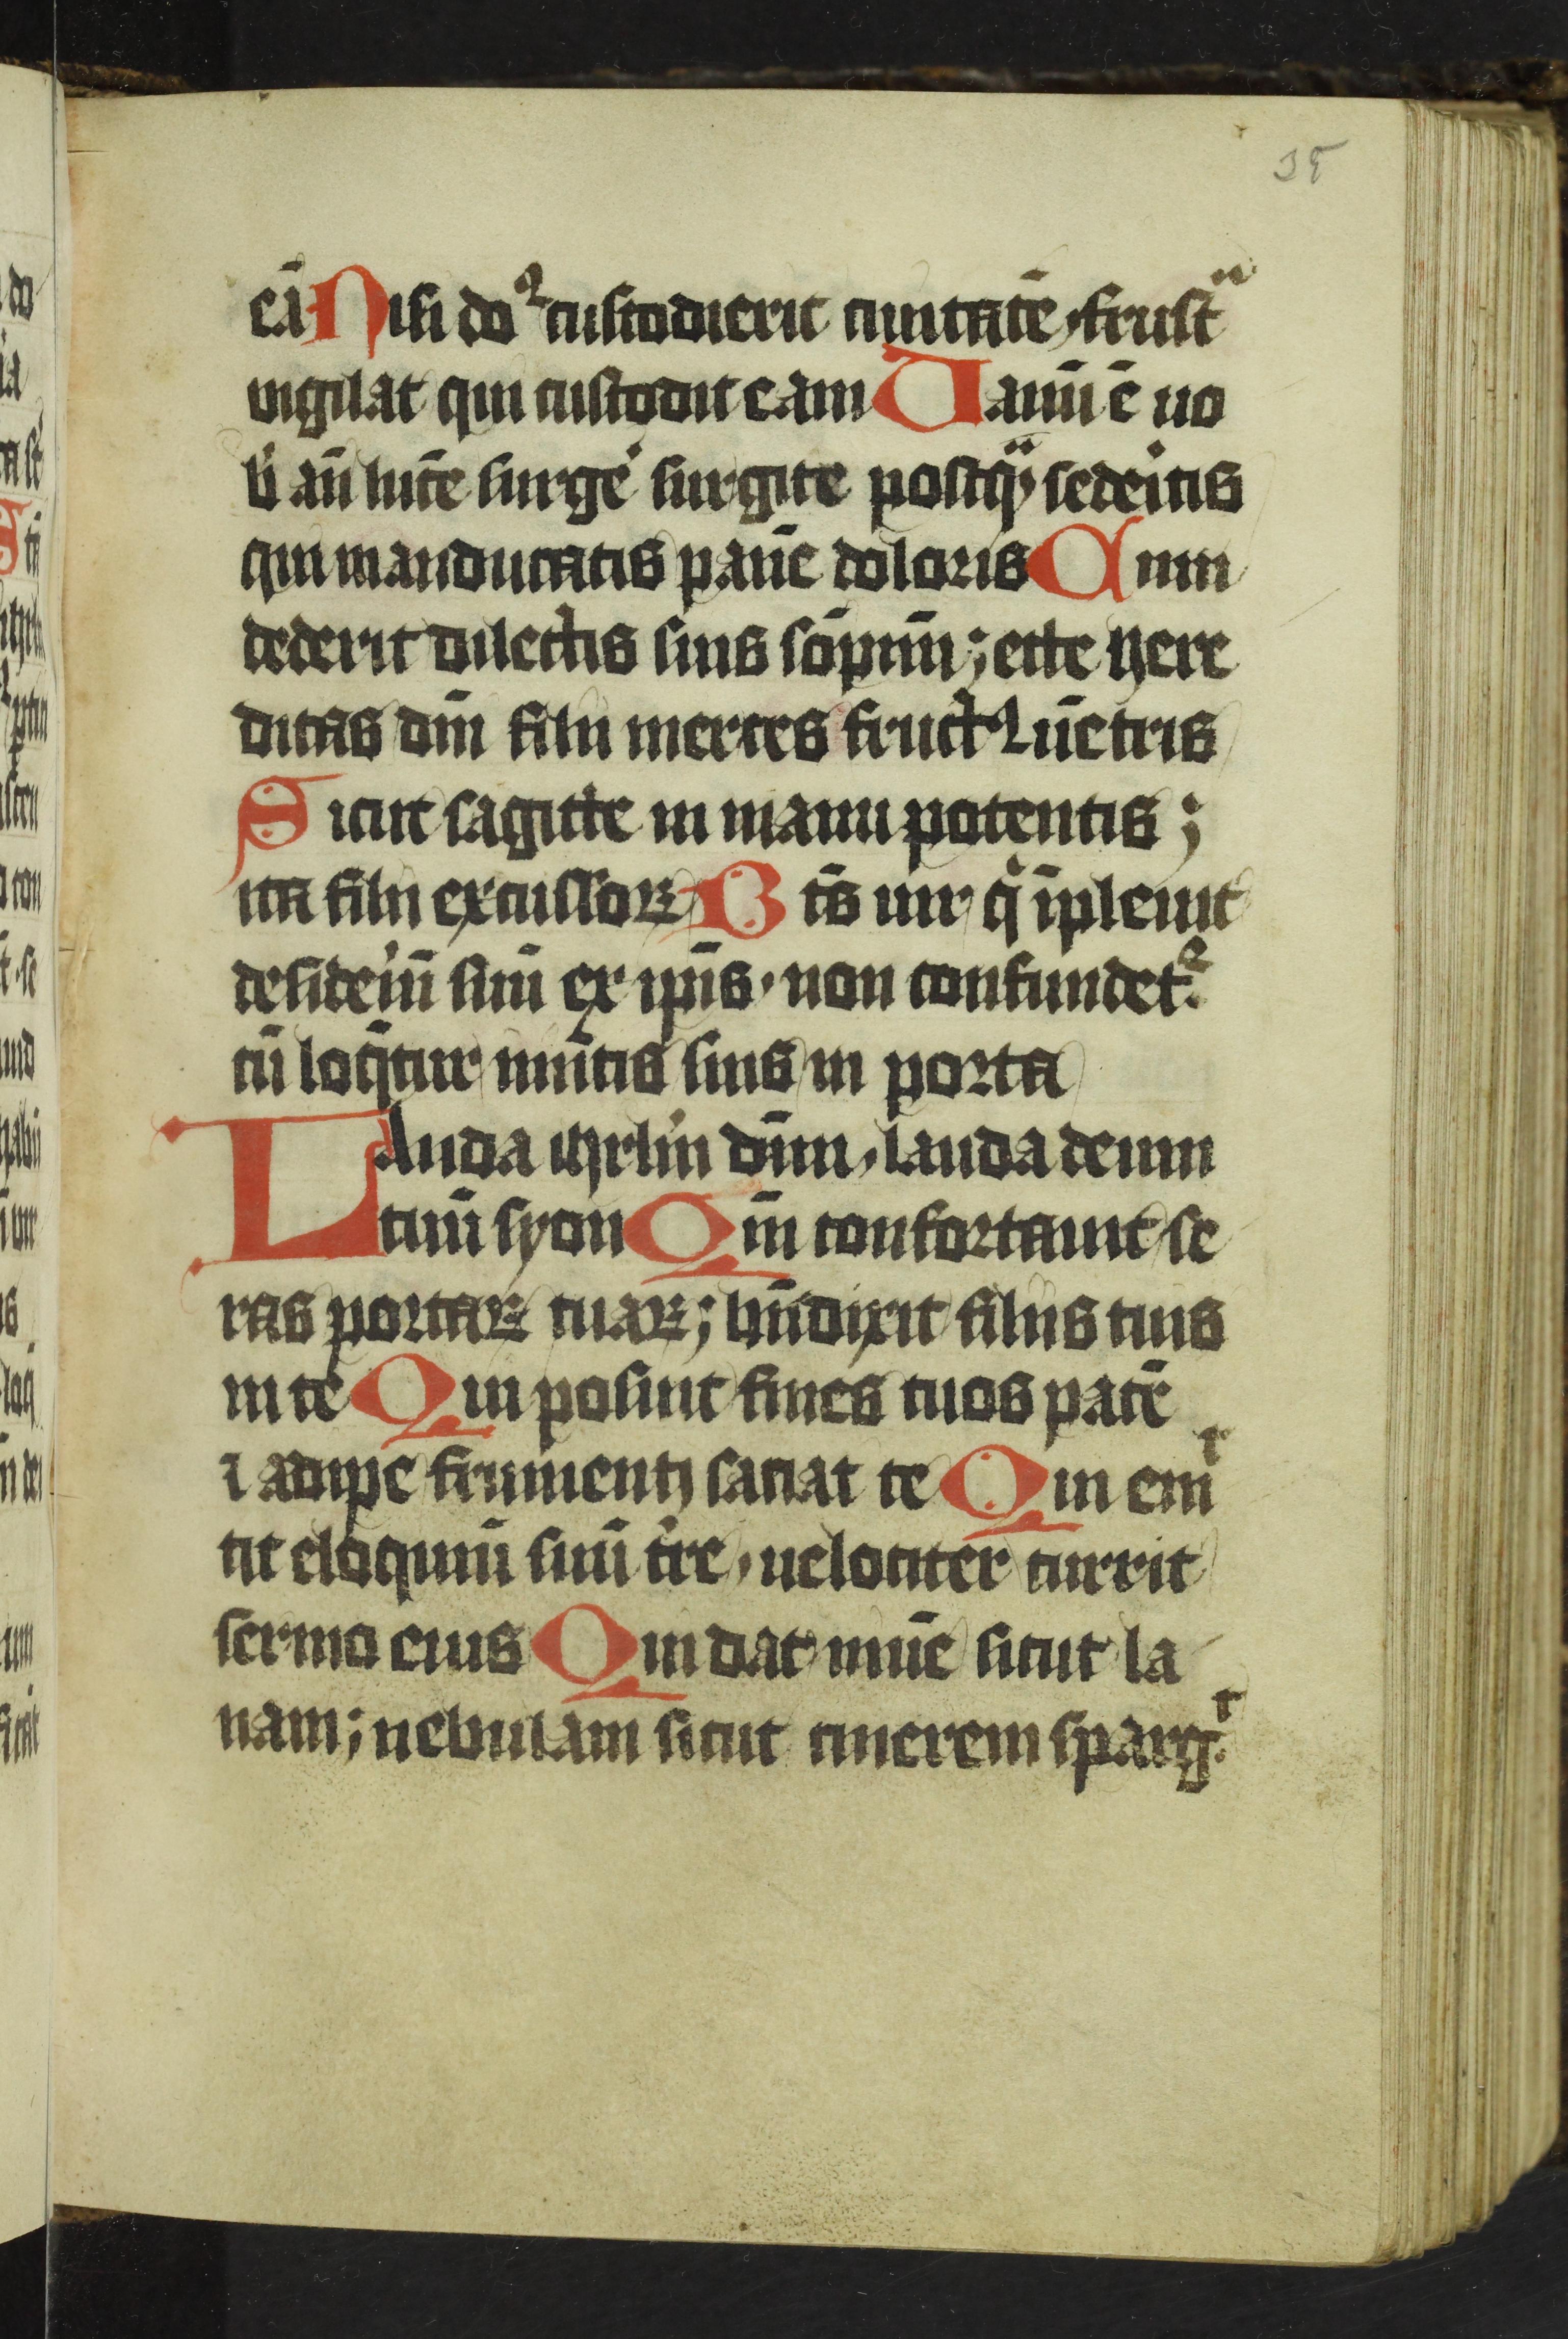 35
eā Nisi do⁹ custodierit ciuitatē, frust̄ᵃ
uigilat qui custodit eam Uanū ē uo
b̓ an̄ lucē surge̓ surgite postqᵃ̄ sede̓itis
qui manducatis panē doloris Cum
dederit dilectis suis sōpnū; ecce here
ditas dn̄i filii merces fruct⁹ uētris
Sicut sagitte in manu potentis;
ita filii excussoꝝ Bt̄s uir qⁱ īpleuit
deside̓iū suū ex ip̄is, non confundet᷑
cū loq̄tur inimīcis suis in porta
Lauda ihrl̄m dn̄m, lauda deum
tuū syon Qm̄ confortauit se
ras portaꝝ tuaꝝ; bn̄dixit filiis tuis
in te Qui posuit fines tuos pacē
⁊ adipe frumenti saciat te Qui emⁱ
tit eloquiū suū t̓re, uelociter currit
sermo eius Qui dat niuē sicut la
nam; nebulam sicut cinerem spargᵗ